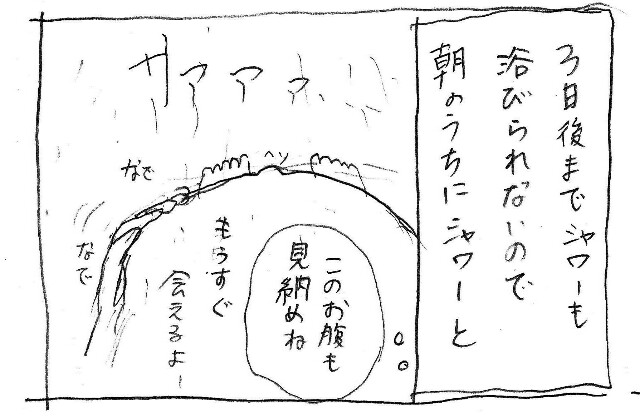 3日後までシャワーも
浴びられないので
朝のうちにシャワーと
サアアア
ヘソ
なで
なで
このお腹も
見納めね
もうすぐ
会えるよー